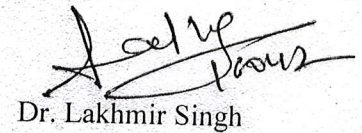 Dr. Lakhmir Singh